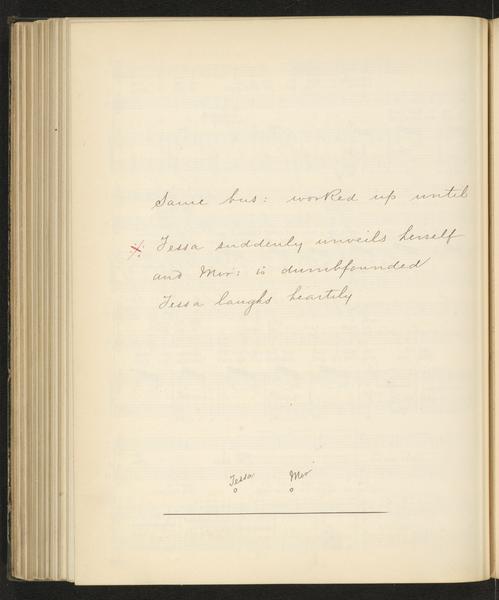 Same bus: worked up until
·/· Tessa suddenly unveils herself
and Mir: is dumbfounded
Tessa laughs heartily
Tessa Mir